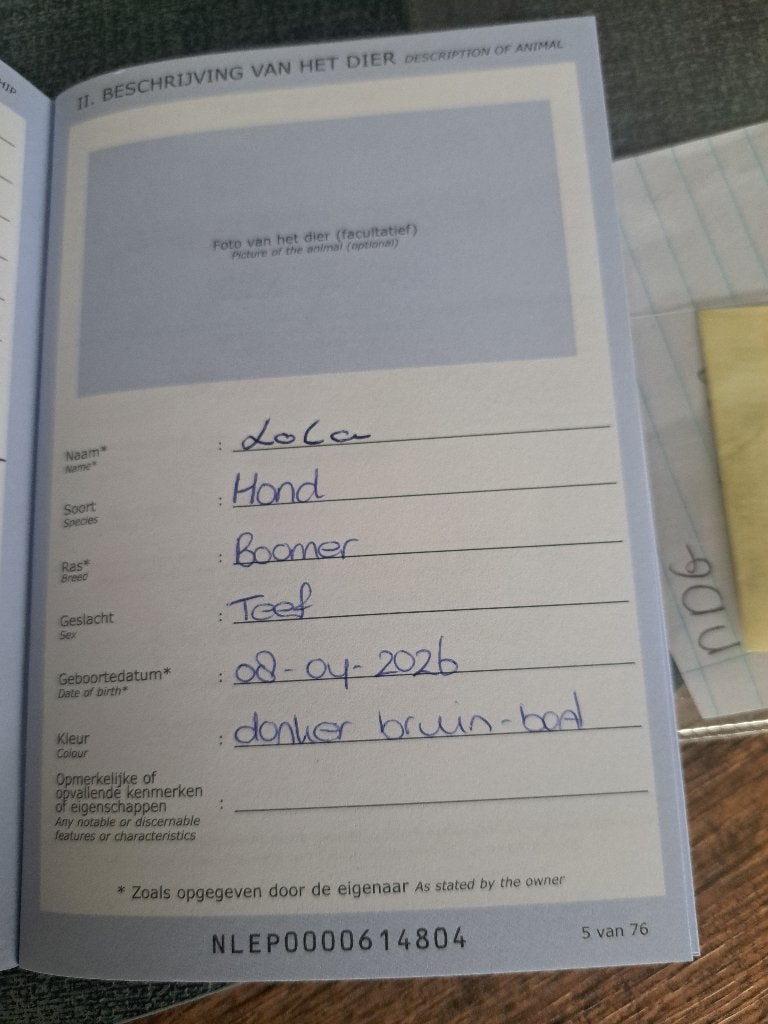 HIP
II. BESCHRIJVING VAN HET DIER DESCRIPTION OF ANIMAL
Foto van het dier (facultatief)
Picture of the animal (optional)
Naam* : Lola
Name*
Soort : Hond
Species
Ras* : Boomer
Breed
Geslacht : Teef
Sex
Geboortedatum* : 08-04-2026
Date of birth*
Kleur : donker bruin-
Colour
Opmerkelijke of
opvallende kenmerken
of eigenschappen :
Any notable or discernable
features or characteristics
* Zoals opgegeven door de eigenaar As stated by the owner
NLEP0000614804
5 van 76